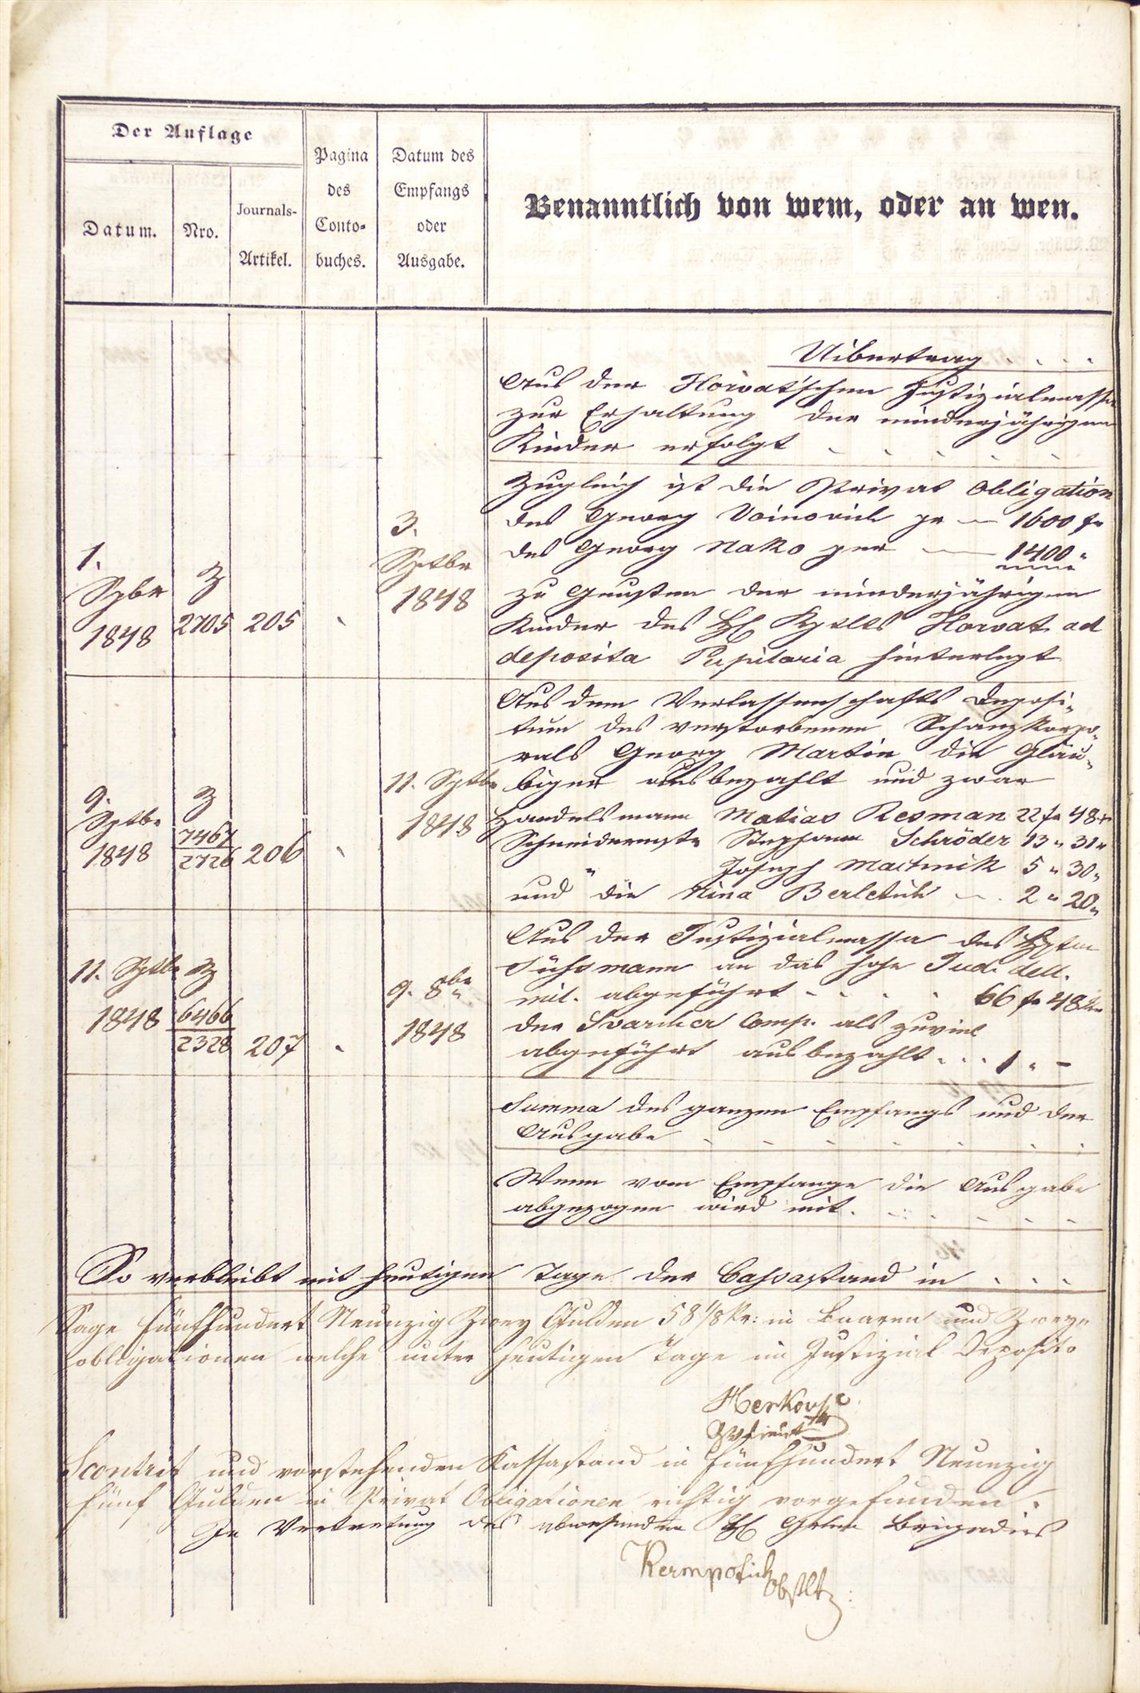 Der Auflage
Datum.
Nro.
Journals-
Artikel.
Pagina
des
Conto-
buches.
Datum des
Empfangs
oder
Ausgabe.
Benanntlich von wem, oder an wen.
Uibertrag . . . .
Aus der Horvat'schen Justizialmassa
zur Erhaltung der minderjährigen
Kinder erfolgt . . . . .
1.
Spbr
1848
Z
2705
205
3.
Sptbr
1848
Zugleich ist die Privat Obligation
des Georg Voinovich pr — 1600 f
des Georg Nako per — 1400 "
zu Gunsten der minderjährigen
Kinder des H Horvat ad
deposita Pupilaria hinterlegt
9.
Sptbr
1848
Z
7467
2726
206
11. Sptbr
1848
Aus dem Verlassenschafts Deposi-
tum des verstorbenen Schanzkorpo-
rals Georg Martin die Gläu-
biger ausbezahlt und zwar
Handelsmann Matias Resman 22 f 48 kr
Schneidermstr Stephann Schröder 13 " 31 "
" Joseph Martinik 5 " 30 "
und die Nina Berletich — . 2 " 20 "
11. Sptbr
1848
Z
6466
2328
207
9. 8ber
1848
Aus der Justizialmassa des Hptm
Süssmann an das hohe Jud: del.
mil. abgeführt . . . . 66 f 48 kr
der Svarcher Comp. als zuviel
abgeführt ausbezahlt . . . 1 " –
Summa des ganzen Empfangs und der
Ausgabe . . . . . . . .
Wenn vom Empfange die Ausgabe
abgezogen wird mit . . . . . .
So verbleibt mit heutigen Tage der Cassastand in . . .
Sage Fünfhundert Neunzig Zwey Gulden 58 1/8 Kr: in Baaren und Zweyn
obligationen welche unter heutigen Tage im Justizial Deposito
Herkov
Scontrirt und vorstehenden Kassastand in Fünfhundert Neunzig
fünf Gulden in Privat Obligationen richtig vorgefunden.
In Vertretung des abwesenden H Brigadiers
Kermpotich
Obstltz